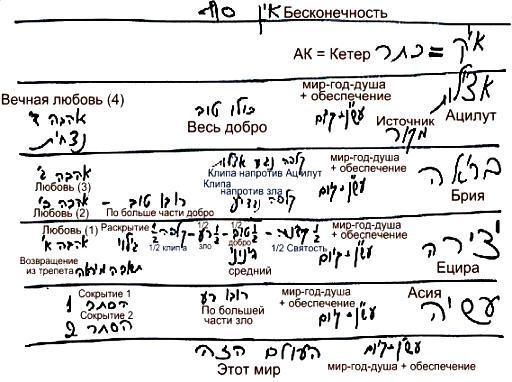 אין סוף Бесконечность
АК = Кетер כתר = א"ק
Вечная любовь (4) мир-год-душа + обеспечение אצילות
אהבה ד' נצחית כולו טוב עש"ן + קיום Источник Ацилут
Весь добро מקור
קליפה נגד אצילות мир-год-душа + обеспечение
אהבה ג' Клипа напротив Ацилут בריאה
Любовь (3) Клипа напротив зла עש"ן + קיום
אהבה ב' רובו טוב Брия
Любовь (2) По больше части добро
Любовь (1) Раскрытие 1/2 1/2 мир-год-душа + обеспечение
אהבה א' גילוי 1/2 קליפה - 1/2 רע - 1/2 טוב - 1/2 קדושה יצירה
1/2 клипа зло добро 1/2 Святость עש"ן + קיום
Возвращение из трепета תשובה מיראה בינוני средний Ецира
Сокрытие 1 רובו רע мир-год-душа + обеспечение Асия
1 הסתר По большей части зло עש"ן + קיום עשיה
Сокрытие 2
2 הסתר
העולם הזה עש"ן + קיום
Этот мир мир-год-душа + обеспечение